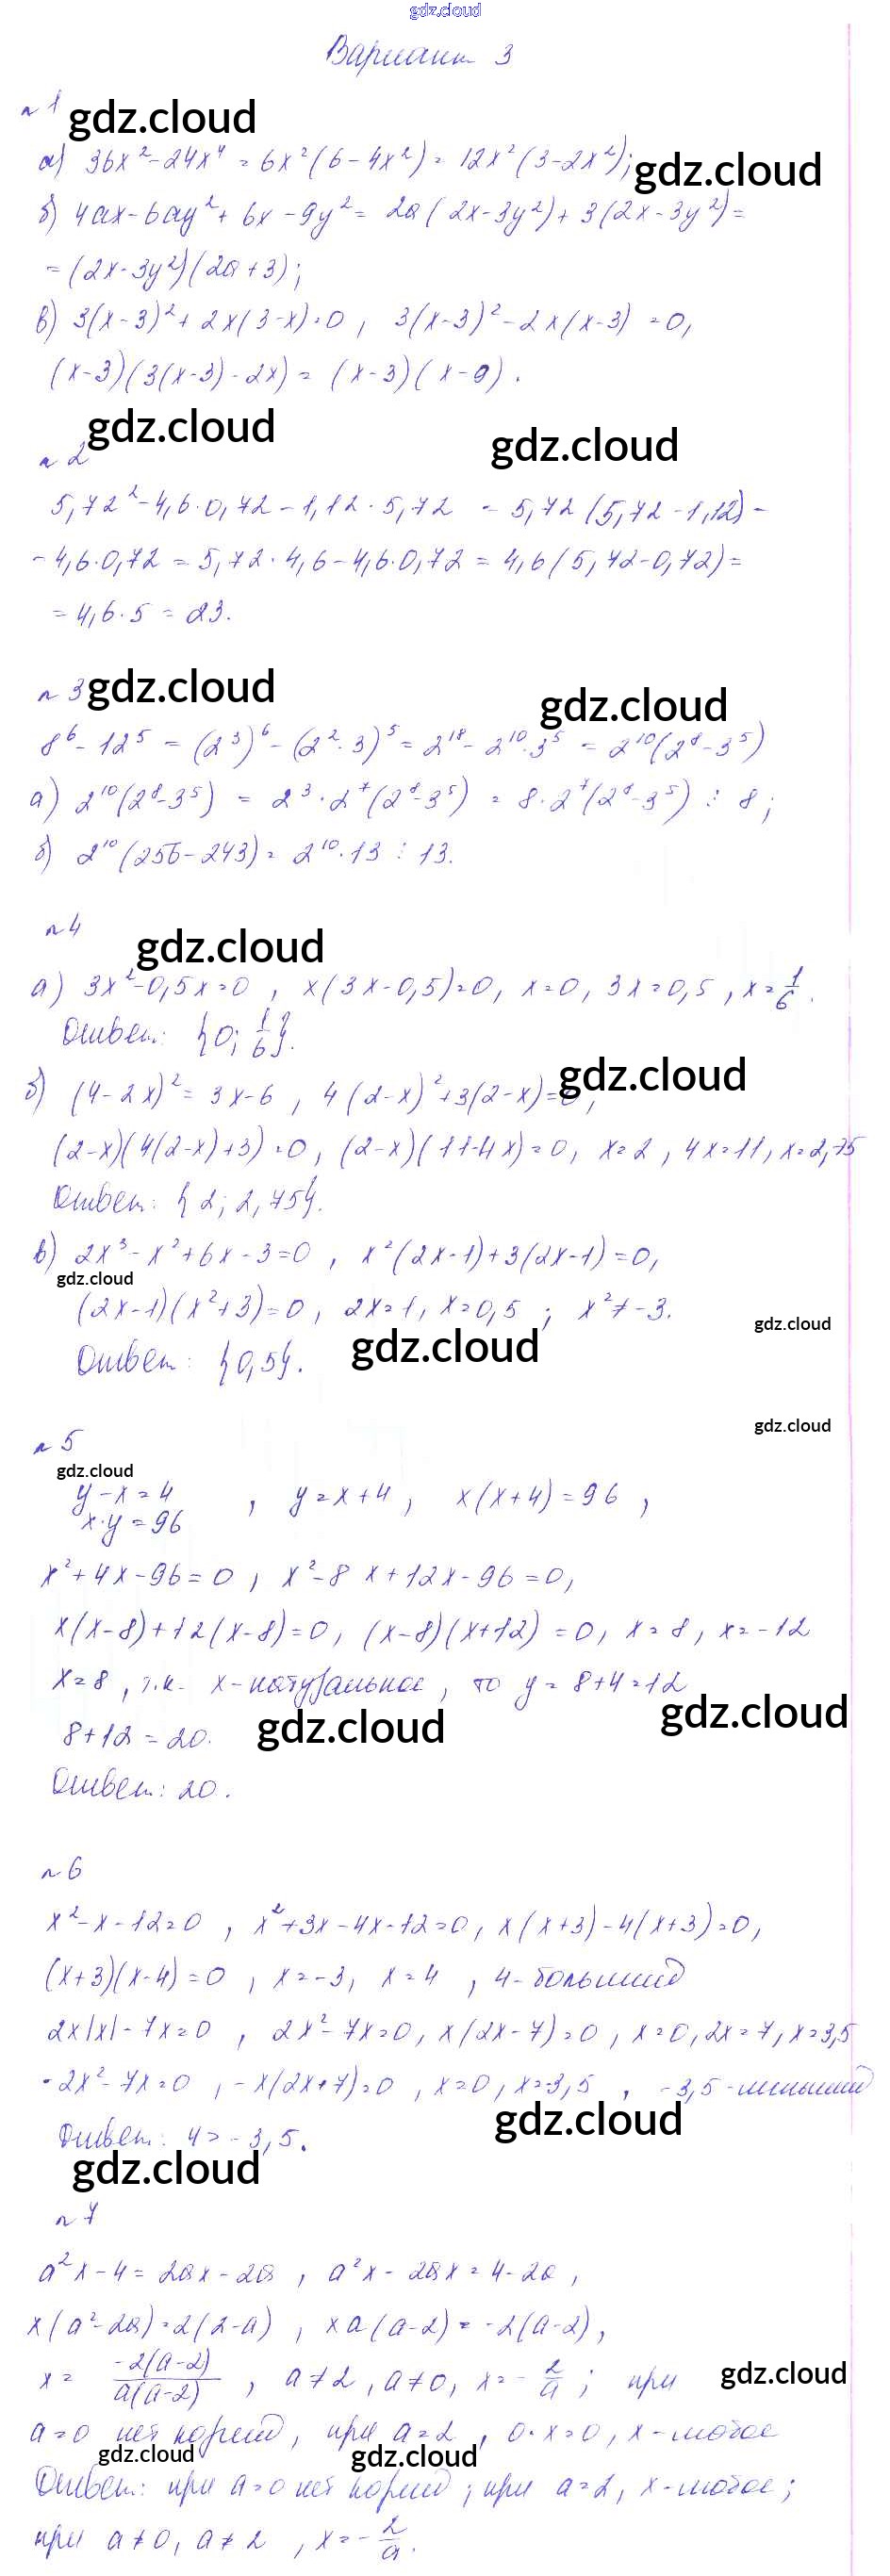 gdz.cloud
Вариант 3
№ 1 gdz.cloud
а) 36x² - 24x⁴ = 6x²(6 - 4x²) = 12x²(3 - 2x²); gdz.cloud
б) 4ax - 6ay² + 6x - 9y² = 2a(2x - 3y²) + 3(2x - 3y²) =
= (2x - 3y²)(2a + 3);
в) 3(x - 3)² + 2x(3 - x) = 0, 3(x - 3)² - 2x(x - 3) = 0,
(x - 3)(3(x - 3) - 2x) = (x - 3)(x - 9).
gdz.cloud gdz.cloud
№ 2
5,72² - 4,6·0,72 - 1,12·5,72 = 5,72(5,72 - 1,12) -
- 4,6·0,72 = 5,72·4,6 - 4,6·0,72 = 4,6(5,72 - 0,72) =
= 4,6·5 = 23.
№ 3 gdz.cloud gdz.cloud
8⁶ - 12⁵ = (2³)⁶ - (2²·3)⁵ = 2¹⁸ - 2¹⁰·3⁵ = 2¹⁰(2⁸ - 3⁵)
а) 2¹⁰(2⁸ - 3⁵) = 2³·2⁷(2⁸ - 3⁵) = 8·2⁷(2⁸ - 3⁵) ⋮ 8;
б) 2¹⁰(256 - 243) = 2¹⁰·13 ⋮ 13.
№ 4 gdz.cloud
а) 3x² - 0,5x = 0, x(3x - 0,5) = 0, x = 0, 3x = 0,5, x = 1/6.
Ответ: {0; 1/6}.
gdz.cloud
б) (4 - 2x)² = 3x - 6, 4(2 - x)² + 3(2 - x) = 0,
(2 - x)(4(2 - x) + 3) = 0, (2 - x)(11 - 4x) = 0, x = 2, 4x = 11, x = 2,75
Ответ: {2; 2,75}.
в) 2x³ - x² + 6x - 3 = 0, x²(2x - 1) + 3(2x - 1) = 0,
gdz.cloud
(2x - 1)(x² + 3) = 0, 2x = 1, x = 0,5; x² ≠ -3.
gdz.cloud
Ответ: {0,5}. gdz.cloud
gdz.cloud
№ 5
gdz.cloud
y - x = 4
x·y = 96, y = x + 4, x(x + 4) = 96,
x² + 4x - 96 = 0, x² - 8x + 12x - 96 = 0,
x(x - 8) + 12(x - 8) = 0, (x - 8)(x + 12) = 0, x = 8, x = -12
x = 8, т.к. x - натуральное, то y = 8 + 4 = 12
8 + 12 = 20. gdz.cloud gdz.cloud
Ответ: 20.
№ 6
x² - x - 12 = 0, x² + 3x - 4x - 12 = 0, x(x + 3) - 4(x + 3) = 0,
(x + 3)(x - 4) = 0, x = -3, x = 4, 4 - больший
2x|x| - 7x = 0, 2x² - 7x = 0, x(2x - 7) = 0, x = 0, 2x = 7, x = 3,5
-2x² - 7x = 0, -x(2x + 7) = 0, x = 0, x = -3,5, -3,5 - меньший
gdz.cloud
Ответ: 4 > -3,5.
gdz.cloud
№ 7
a²x - 4 = 2ax - 2a, a²x - 2ax = 4 - 2a,
x(a² - 2a) = 2(2 - a), xa(a - 2) = -2(a - 2),
x = -2(a - 2)/a(a - 2), a ≠ 2, a ≠ 0, x = -2/a; при gdz.cloud
a = 0 нет корней, при a = 2, 0·x = 0, x - любое
gdz.cloud gdz.cloud
Ответ: при a = 0 нет корней; при a = 2, x - любое;
при a ≠ 0, a ≠ 2, x = -2/a.